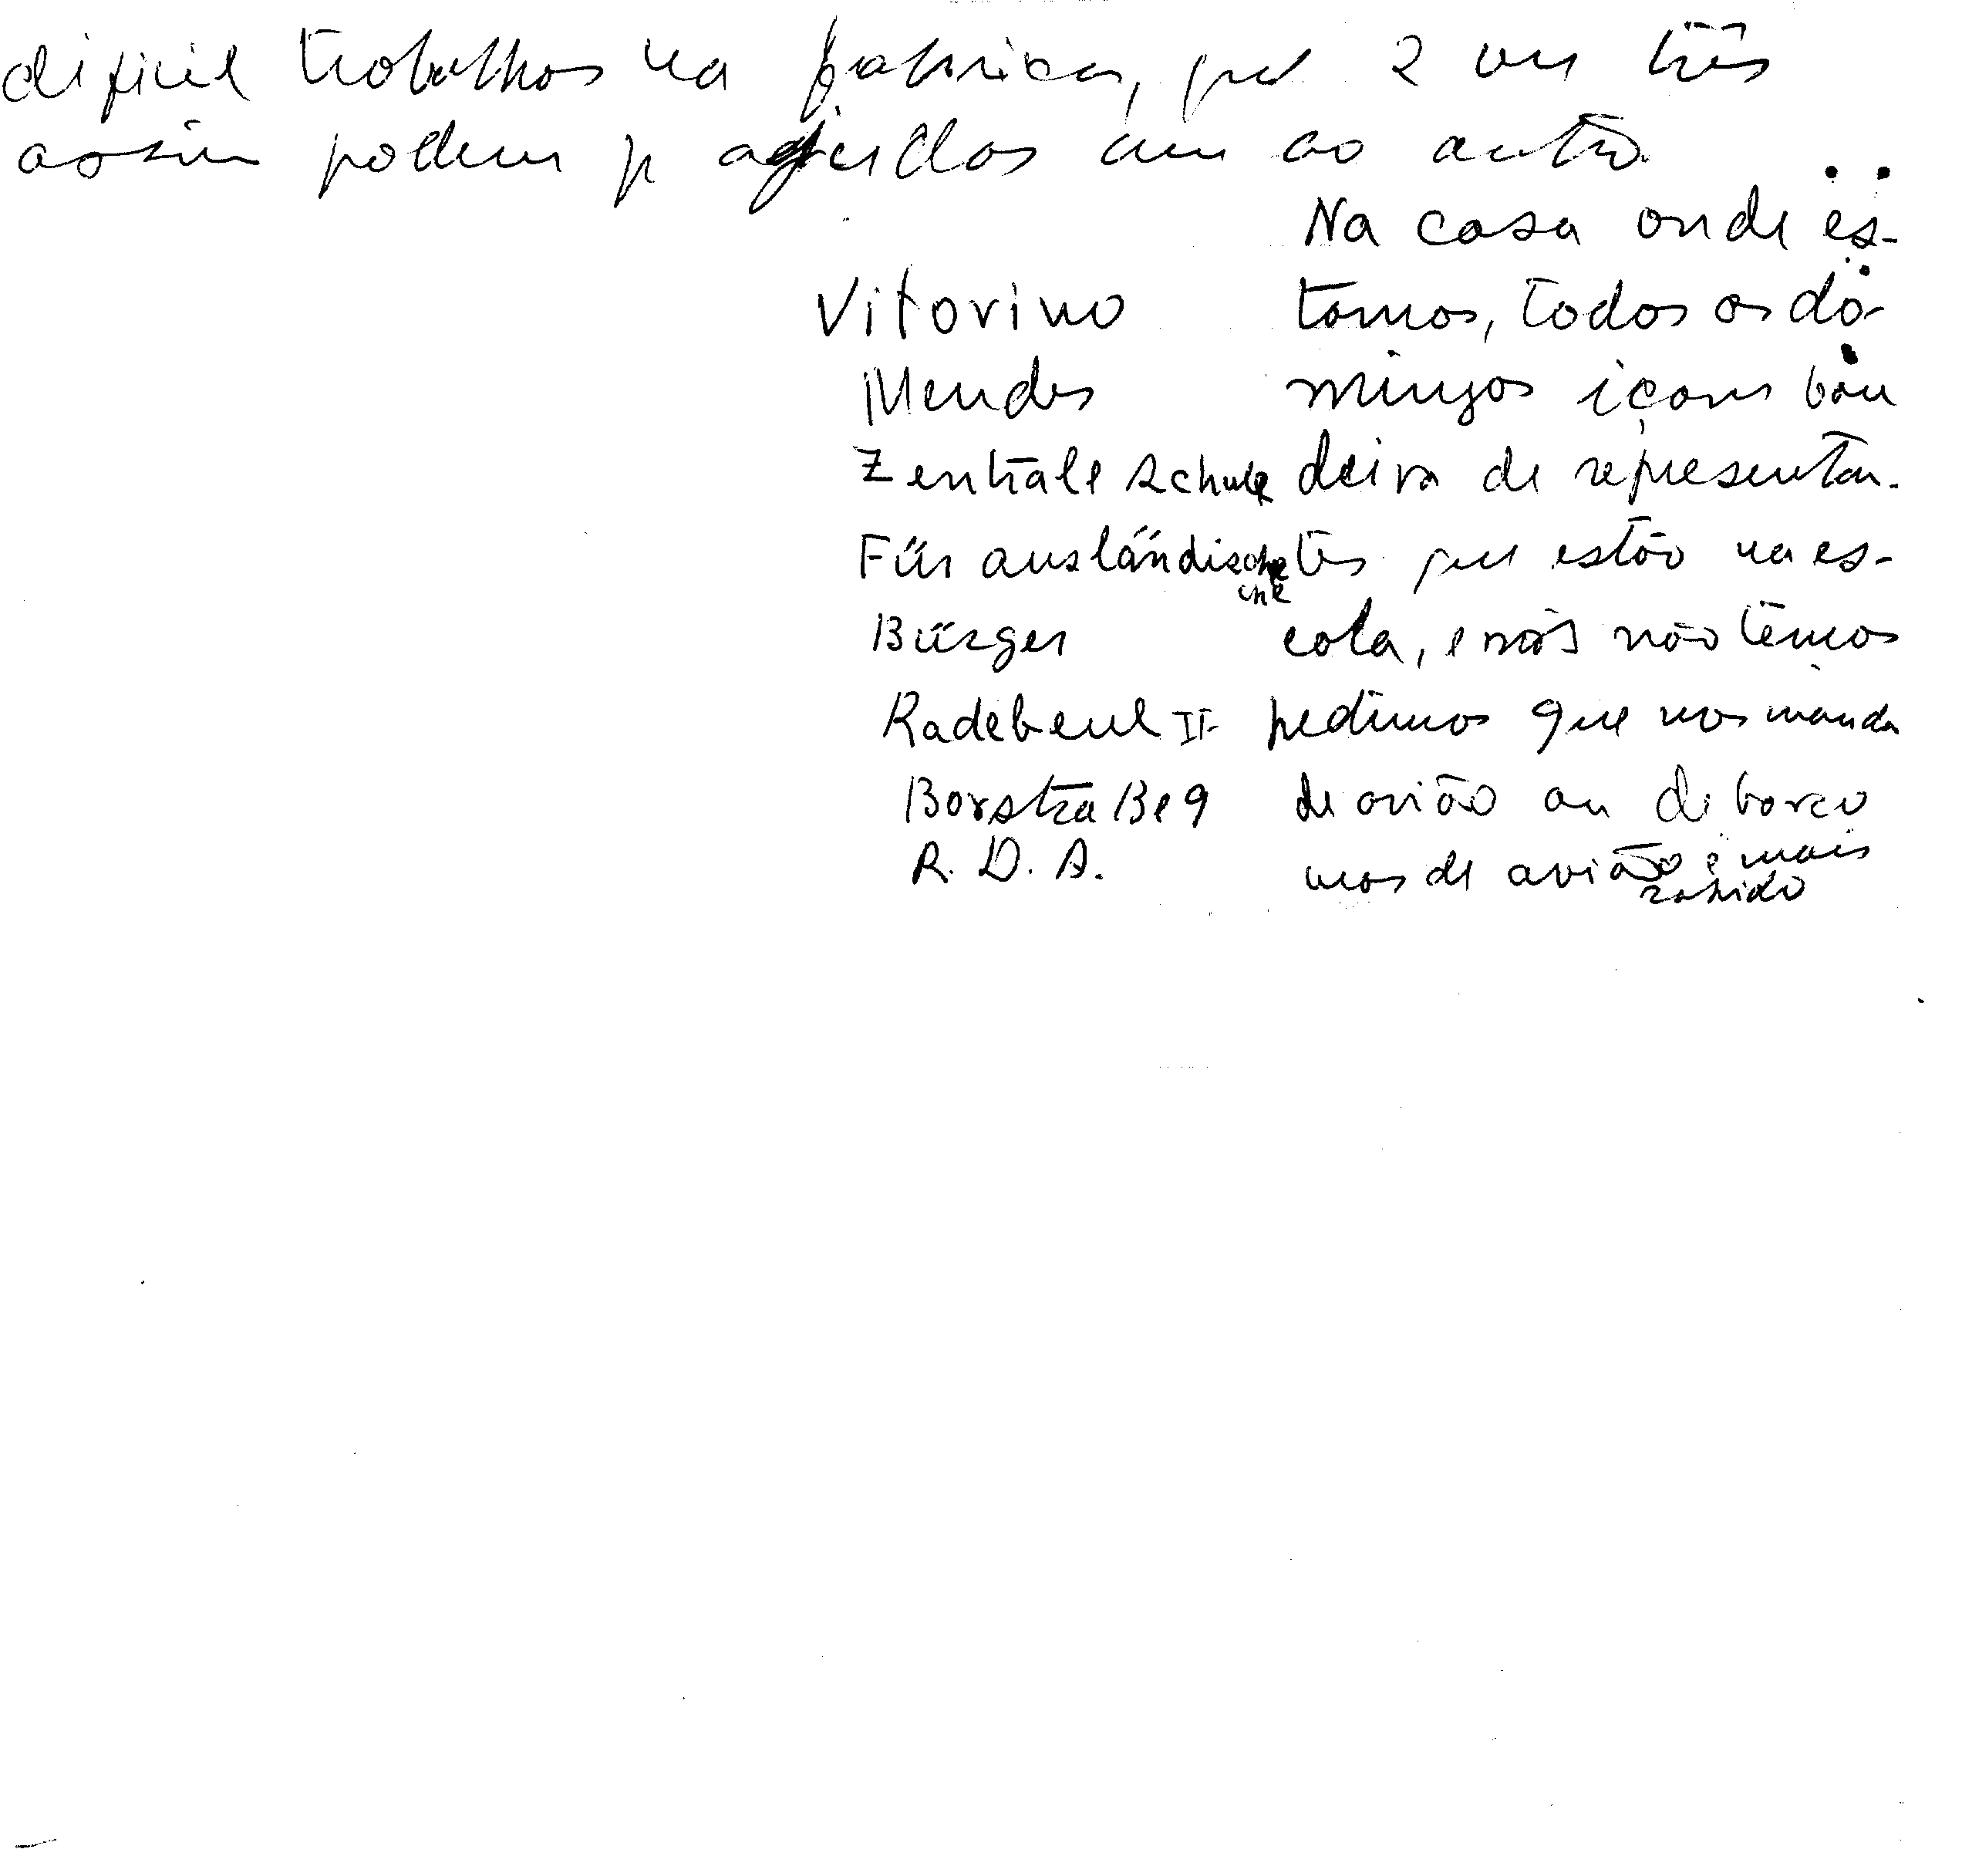 dificil trabalhos na fabrica, que 2 ou três
assim podem p ajudas um ao outro.
Vitorino
Mendes
Zentrale Schule
Für ausländische
che
Bürger
Radebeul II-
BorstraBe 9
R. D. A.
Na casa onde es-
tamos, todos os do-
mingos içam ban
deira de representan-
tes que estão na es-
cola, e nós não têmos
pedimos que nos manda
de avião ou de barco
mas de avião é mais
rapido